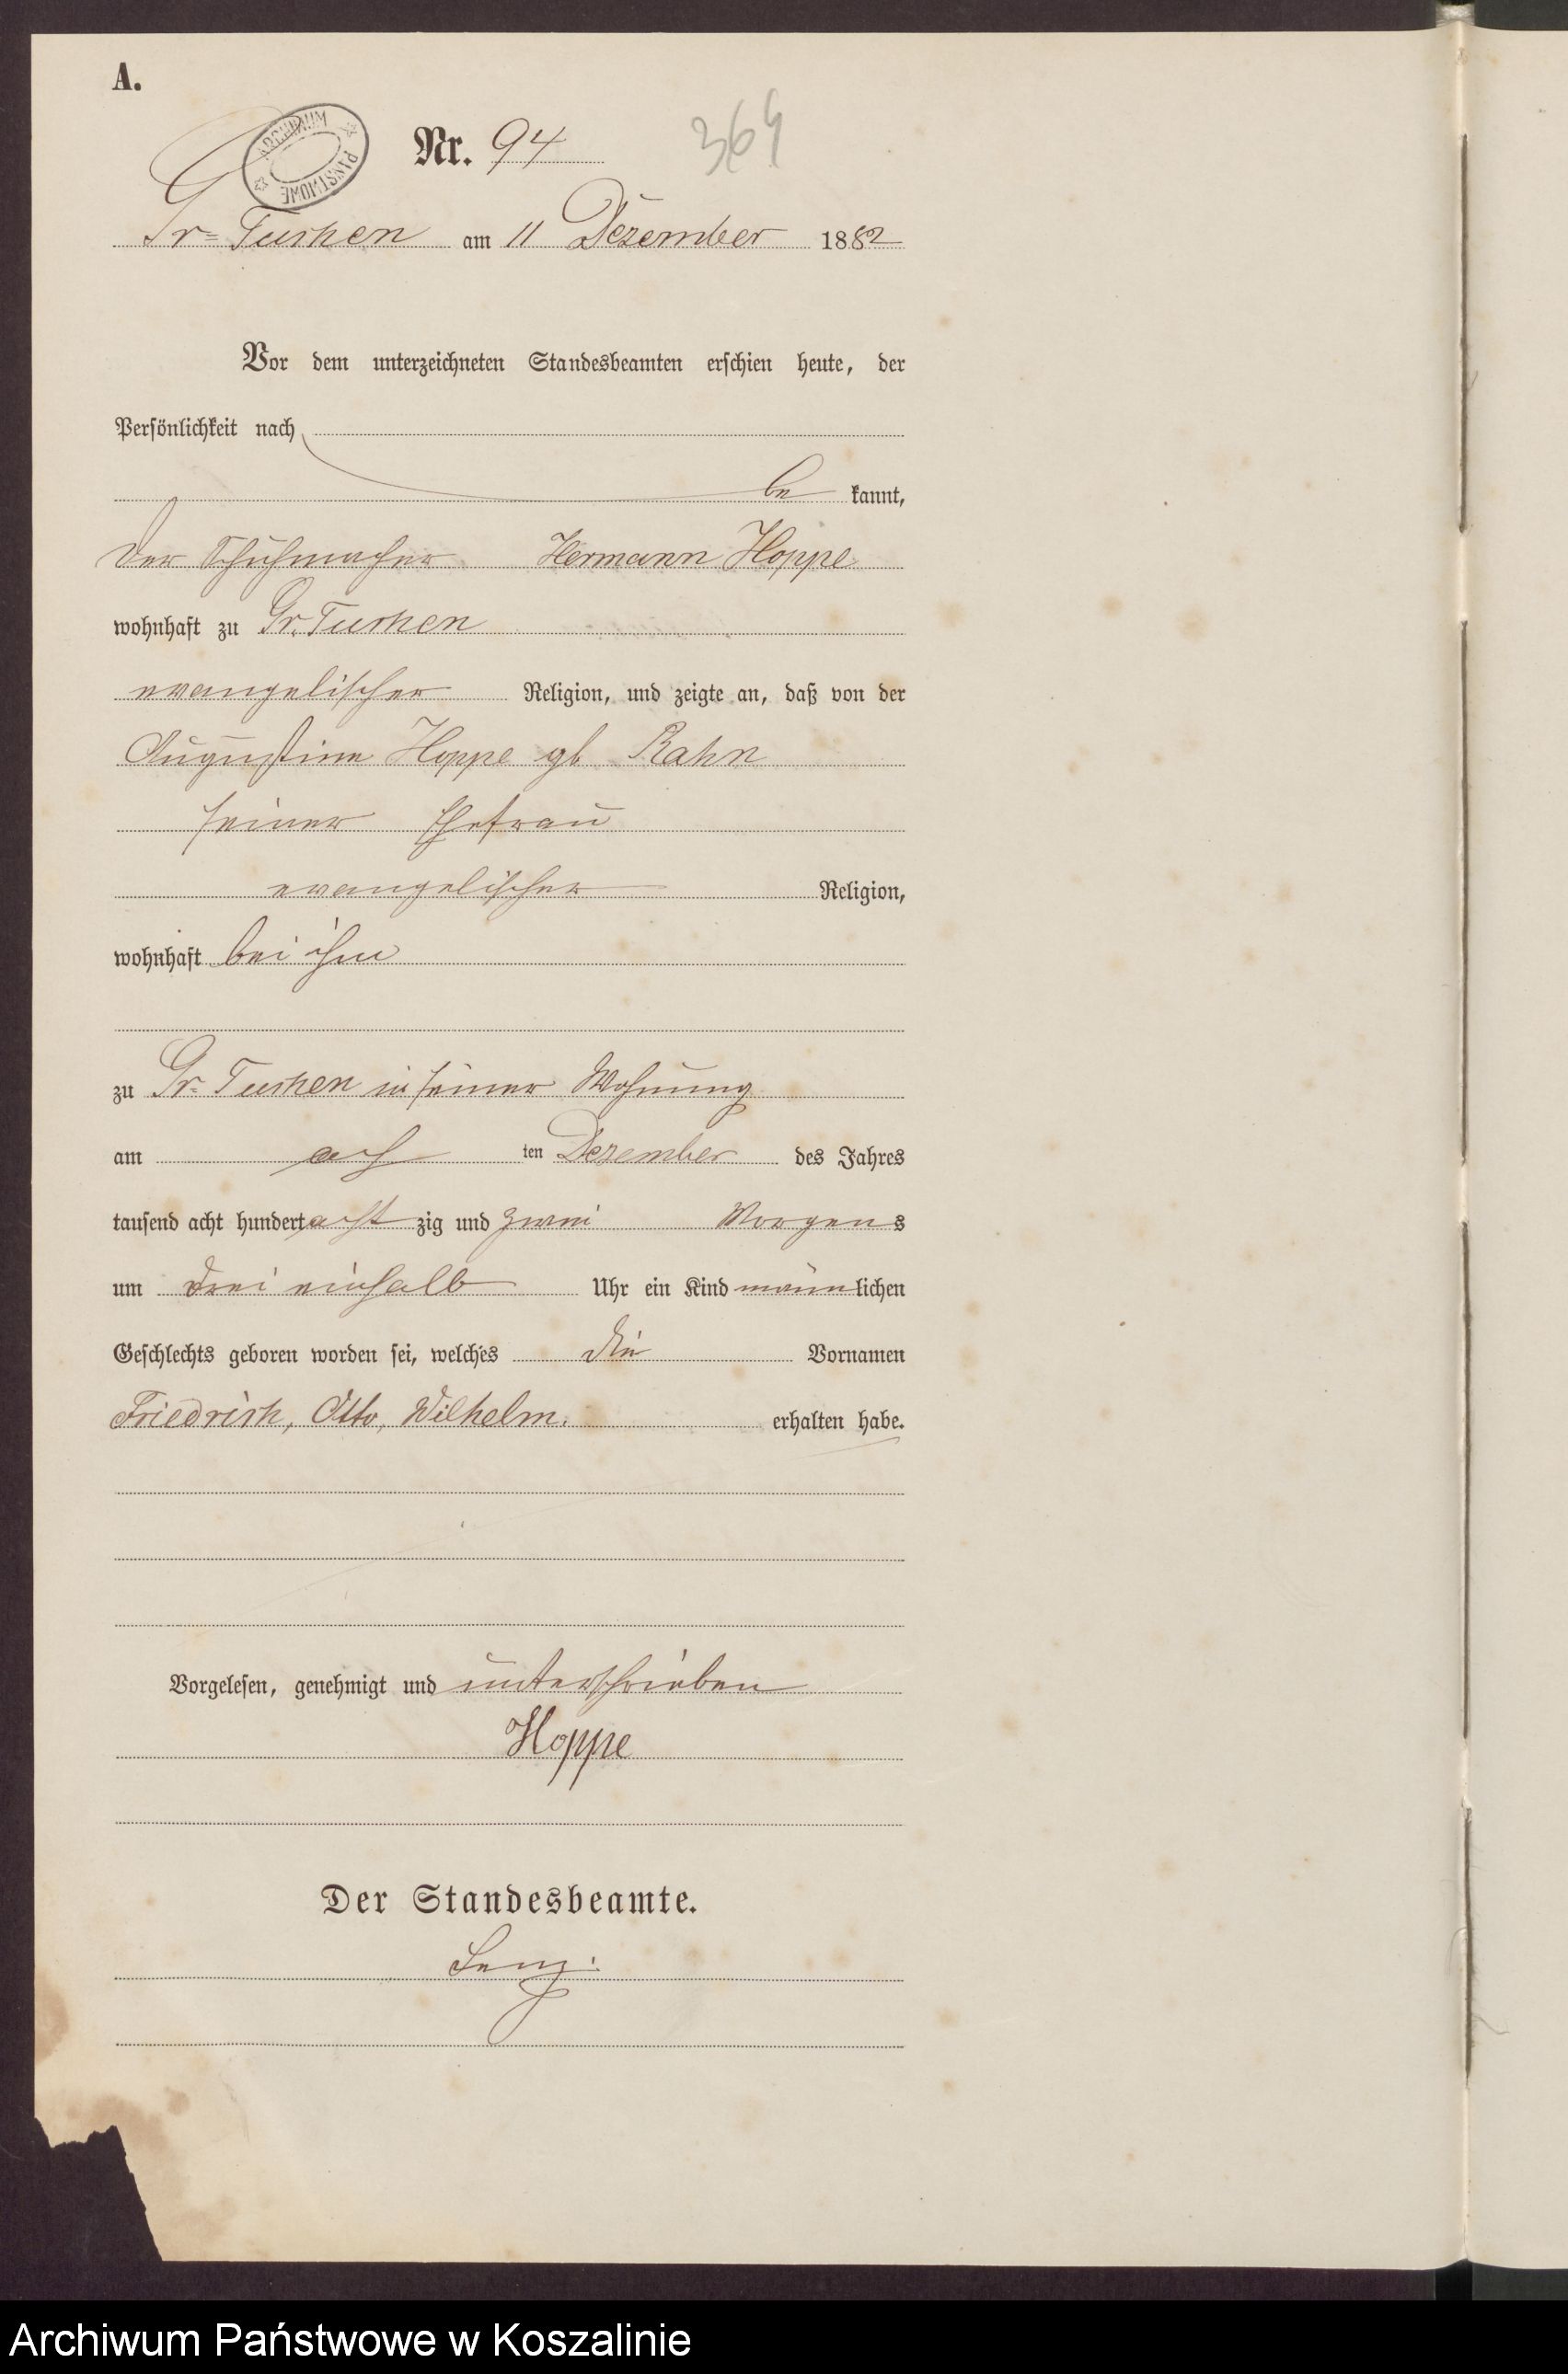 A.
ARCHIWUM PAŃSTWOWE
Nr. 94
364
Gr= Tuchen am 11 Dezember 1882
Vor dem unterzeichneten Standesbeamten erschien heute, der
Persönlichkeit nach
be kannt,
der Schuhmacher Hermann Hoppe
wohnhaft zu Gr. Tuchen
evangelischer Religion, und zeigte an, daß von der
Augustine Hoppe gb Rahn
seiner Ehefrau
evangelischer Religion,
wohnhaft bei ihm
zu Gr= Tuchen in seiner Wohnung
am ach ten Dezember des Jahres
tausend acht hundert acht zig und zwei Morgens
um drei einhalb Uhr ein Kind männlichen
Geschlechts geboren worden sei, welches die Vornamen
Friedrich, Otto, Wilhelm. erhalten habe.
Vorgelesen, genehmigt und unterschrieben
Hoppe
Der Standesbeamte.
Lenz.
Archiwum Państwowe w Koszalinie